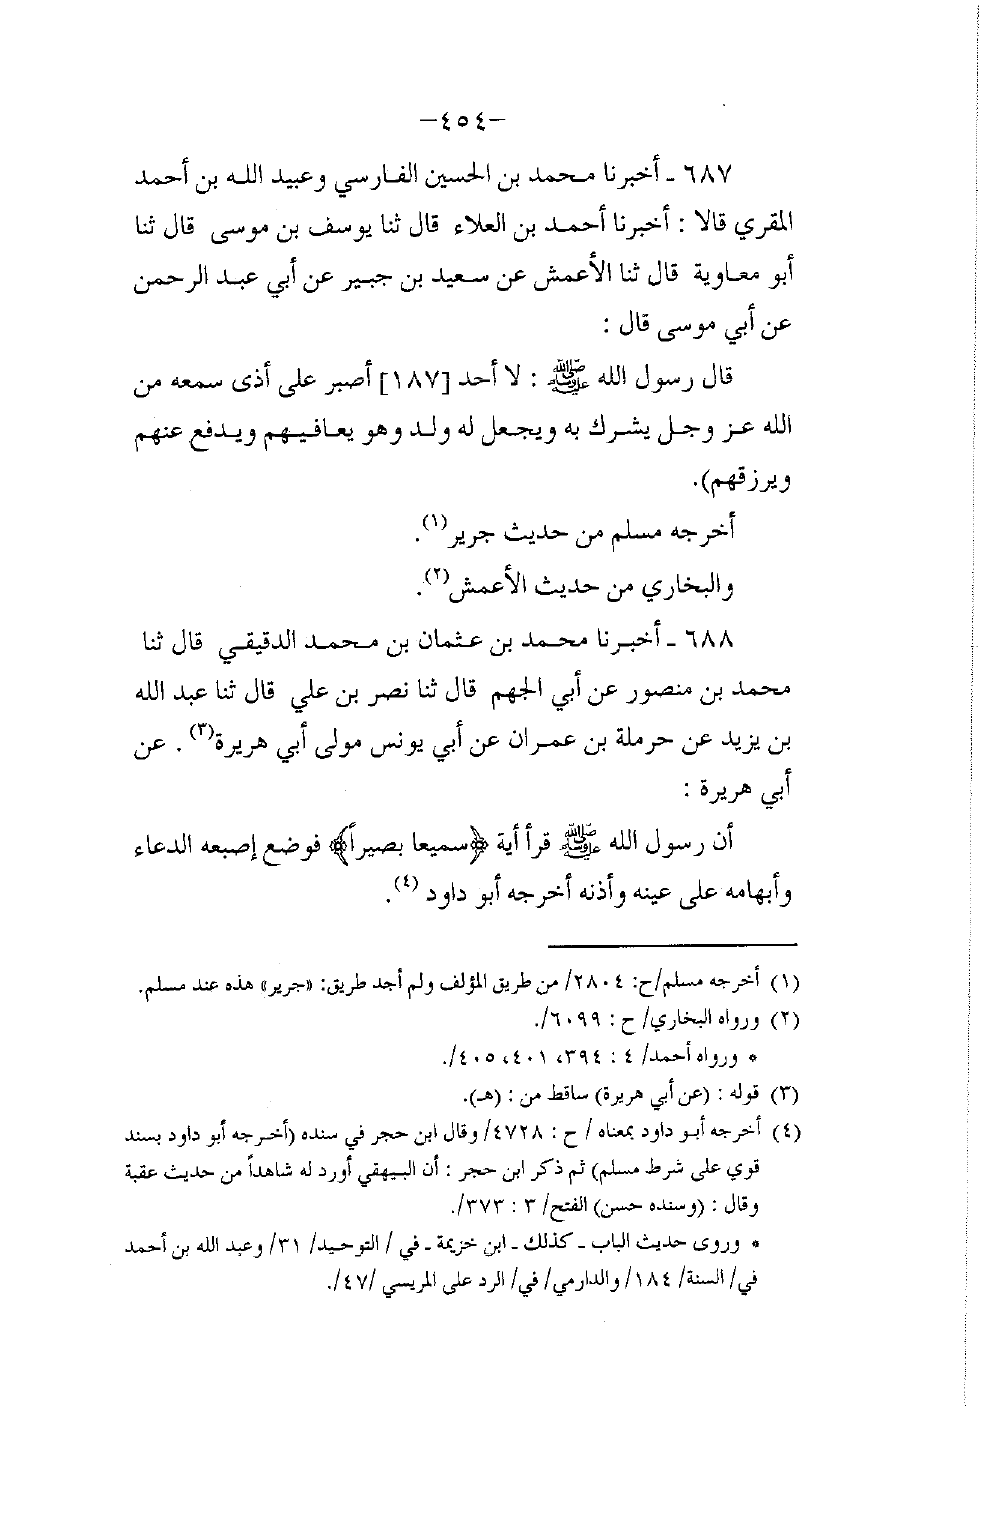 -٤٥٤-
٦٨٧ - أخبرنا محمد بن الحسين الفارسي وعبيد الله بن أحمد
المقري قالا : أخبرنا أحمد بن العلاء قال ثنا يوسف بن موسى قال ثنا
أبو معاوية قال ثنا الأعمش عن سعيد بن جبير عن أبي عبد الرحمن
عن أبي موسى قال :
قال رسول الله ﷺ : لا أحد [١٨٧] أصبر على أذى سمعه من
الله عز وجل يشرك به ويجعل له ولد وهو يعافيهم ويدفع عنهم
ويرزقهم).
أخرجه مسلم من حديث جرير(١).
والبخاري من حديث الأعمش(٢).
٦٨٨ - أخبرنا محمد بن عثمان بن محمد الدقيقي قال ثنا
محمد بن منصور عن أبي الجهم قال ثنا نصر بن علي قال ثنا عبد الله
بن يزيد عن حرملة بن عمران عن أبي يونس مولى أبي هريرة(٣) . عن
أبي هريرة :
أن رسول الله ﷺ قرأ أية ﴿سميعا بصيراً﴾ فوضع إصبعه الدعاء
وأبهامه على عينه وأذنه أخرجه أبو داود (٤).
(١) أخرجه مسلم/ح: ٢٨٠٤/ من طريق المؤلف ولم أجد طريق: «جرير» هذه عند مسلم.
(٢) ورواه البخاري/ ح : ٦٠٩٩/.
* ورواه أحمد/ ٤ : ٣٩٤، ٤٠١، ٤٠٥/.
(٣) قوله : (عن أبي هريرة) ساقط من : (هـ).
(٤) أخرجه أبو داود بمعناه / ح : ٤٧٢٨/ وقال ابن حجر في سنده (أخرجه أبو داود بسند
قوي على شرط مسلم) ثم ذكر ابن حجر : أن البيهقي أورد له شاهداً من حديث عقبة
وقال : (وسنده حسن) الفتح/ ٣ : ٣٧٣/.
* وروى حديث الباب - كذلك - ابن خزيمة - في / التوحيد/ ٣١/ وعبد الله بن أحمد
في/ السنة/ ١٨٤/ والدارمي/ في/ الرد على المريسي /٤٧/.